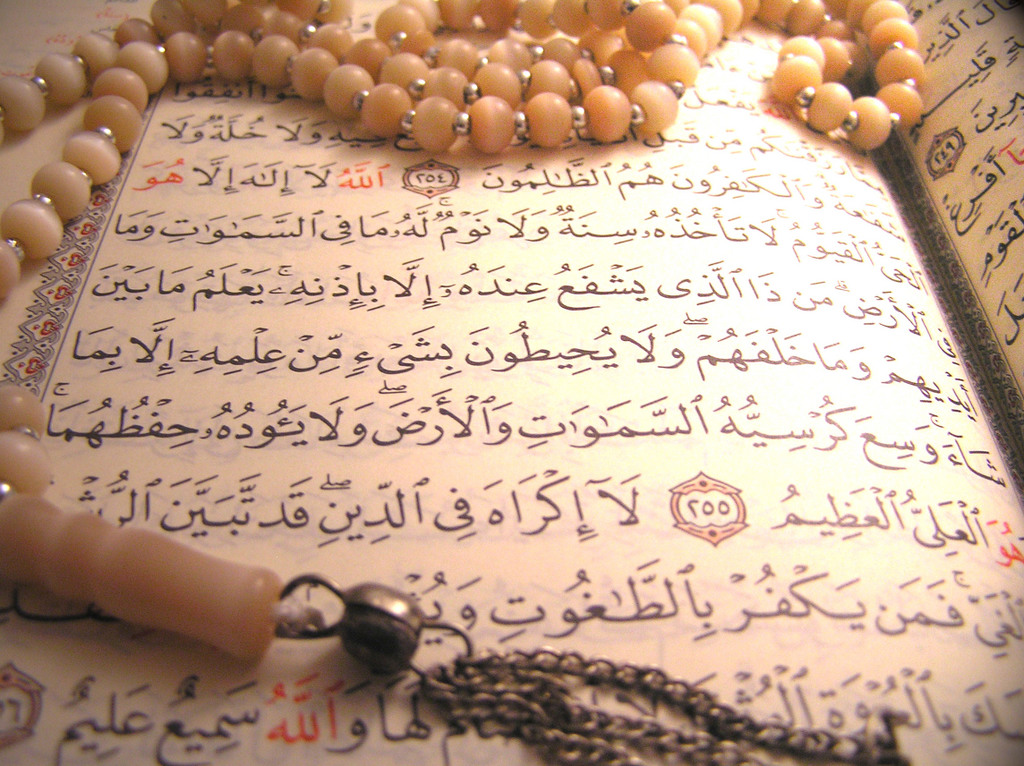 يَفْعَلُ
مِّن قَبْلِ فِيهِ وَلَا خُلَّةٌ وَلَا
شَفَٰعَةٌ وَٱلْكَٰفِرُونَ هُمُ ٱلظَّٰلِمُونَ ٢٥٤ ٱللَّهُ لَآ إِلَٰهَ إِلَّا هُوَ
ٱلْحَىُّ ٱلْقَيُّومُ لَا تَأْخُذُهُۥ سِنَةٌ وَلَا نَوْمٌ ۚ لَّهُۥ مَا فِى ٱلسَّمَٰوَٰتِ وَمَا
ٱلْأَرْضِ ۗ مَن ذَا ٱلَّذِى يَشْفَعُ عِندَهُۥٓ إِلَّا بِإِذْنِهِۦ ۚ يَعْلَمُ مَا بَيْنَ
وَمَا خَلْفَهُمْ ۖ وَلَا يُحِيطُونَ بِشَىْءٍ مِّنْ عِلْمِهِۦٓ إِلَّا بِمَا
شَآءَ ۚ وَسِعَ كُرْسِيُّهُ ٱلسَّمَٰوَٰتِ وَٱلْأَرْضَ ۖ وَلَا يَـُٔودُهُۥ حِفْظُهُمَا ۚ
هُوَ ٱلْعَلِىُّ ٱلْعَظِيمُ ٢٥٥ لَآ إِكْرَاهَ فِى ٱلدِّينِ ۖ قَد تَّبَيَّنَ ٱلرُّشْ
ٱلْغَىِّ ۚ فَمَن يَكْفُرْ بِٱلطَّٰغُوتِ وَيُؤْ
بِٱلْعُرْوَةِ لَهَا ۗ وَٱللَّهُ سَمِيعٌ عَلِيمٌ
قَالَ ٱلَّذِينَ
٢٤٩
أَفْرِغْ
ٱلْقَوْمِ